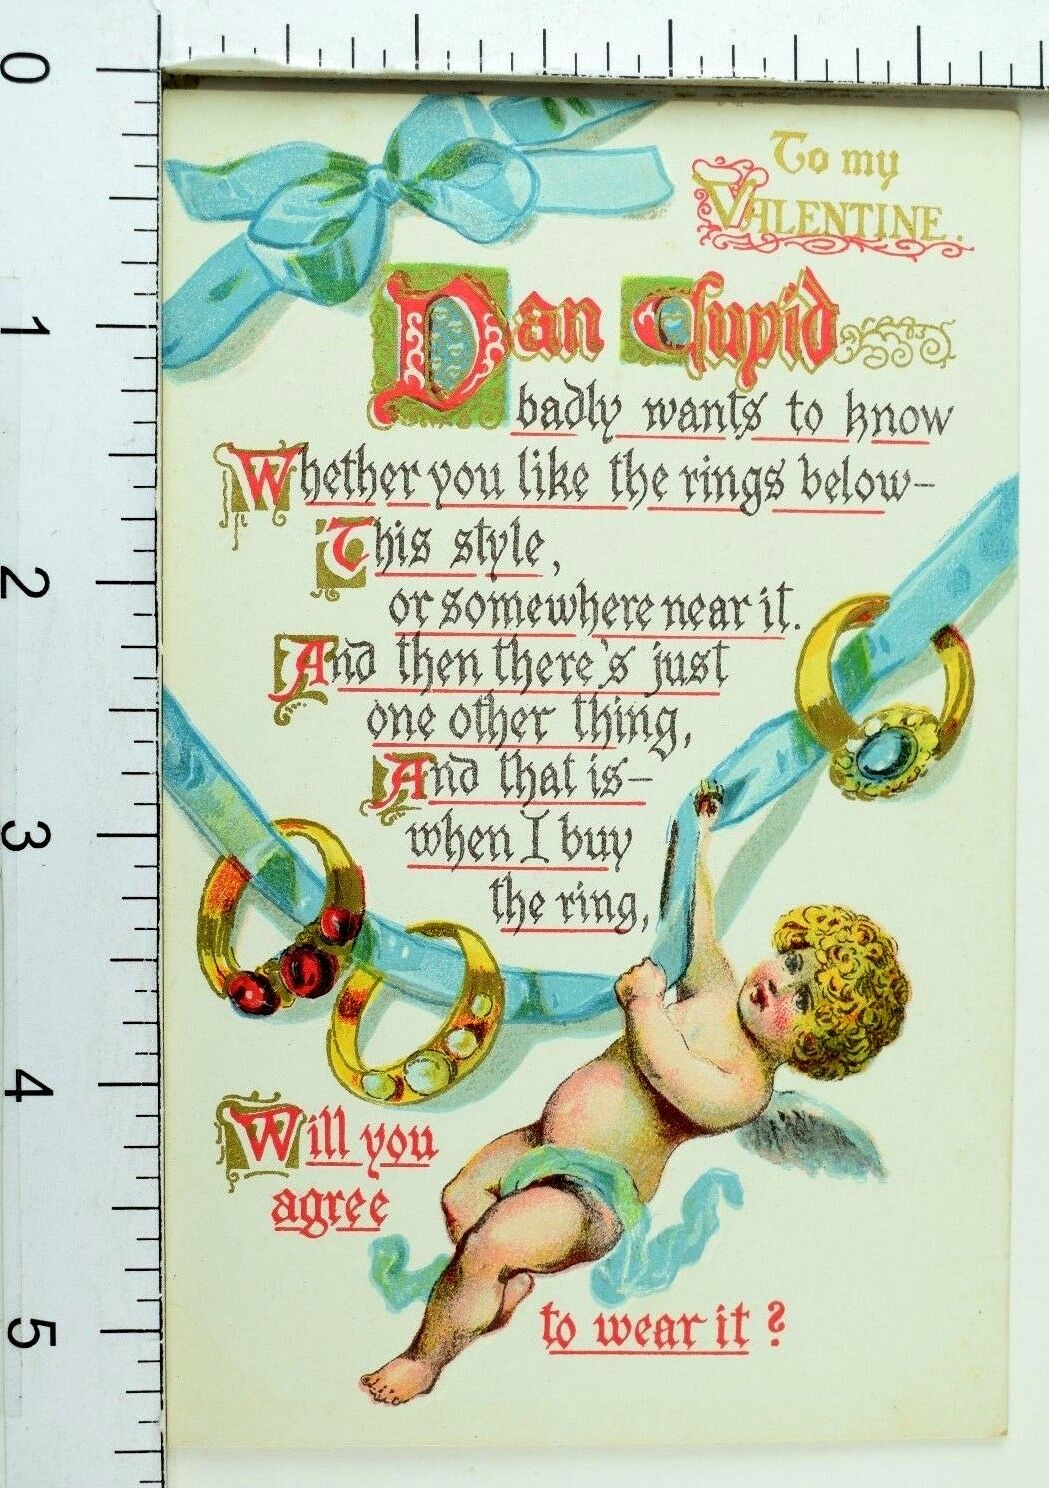 0
1
2
3
4
5
To my
VALENTINE.
Dan Cupid
badly wants to know
Whether you like the rings below-
This style,
or somewhere near it.
And then there's just
one other thing,
And that is-
when I buy
the ring,
Will you
agree
to wear it?